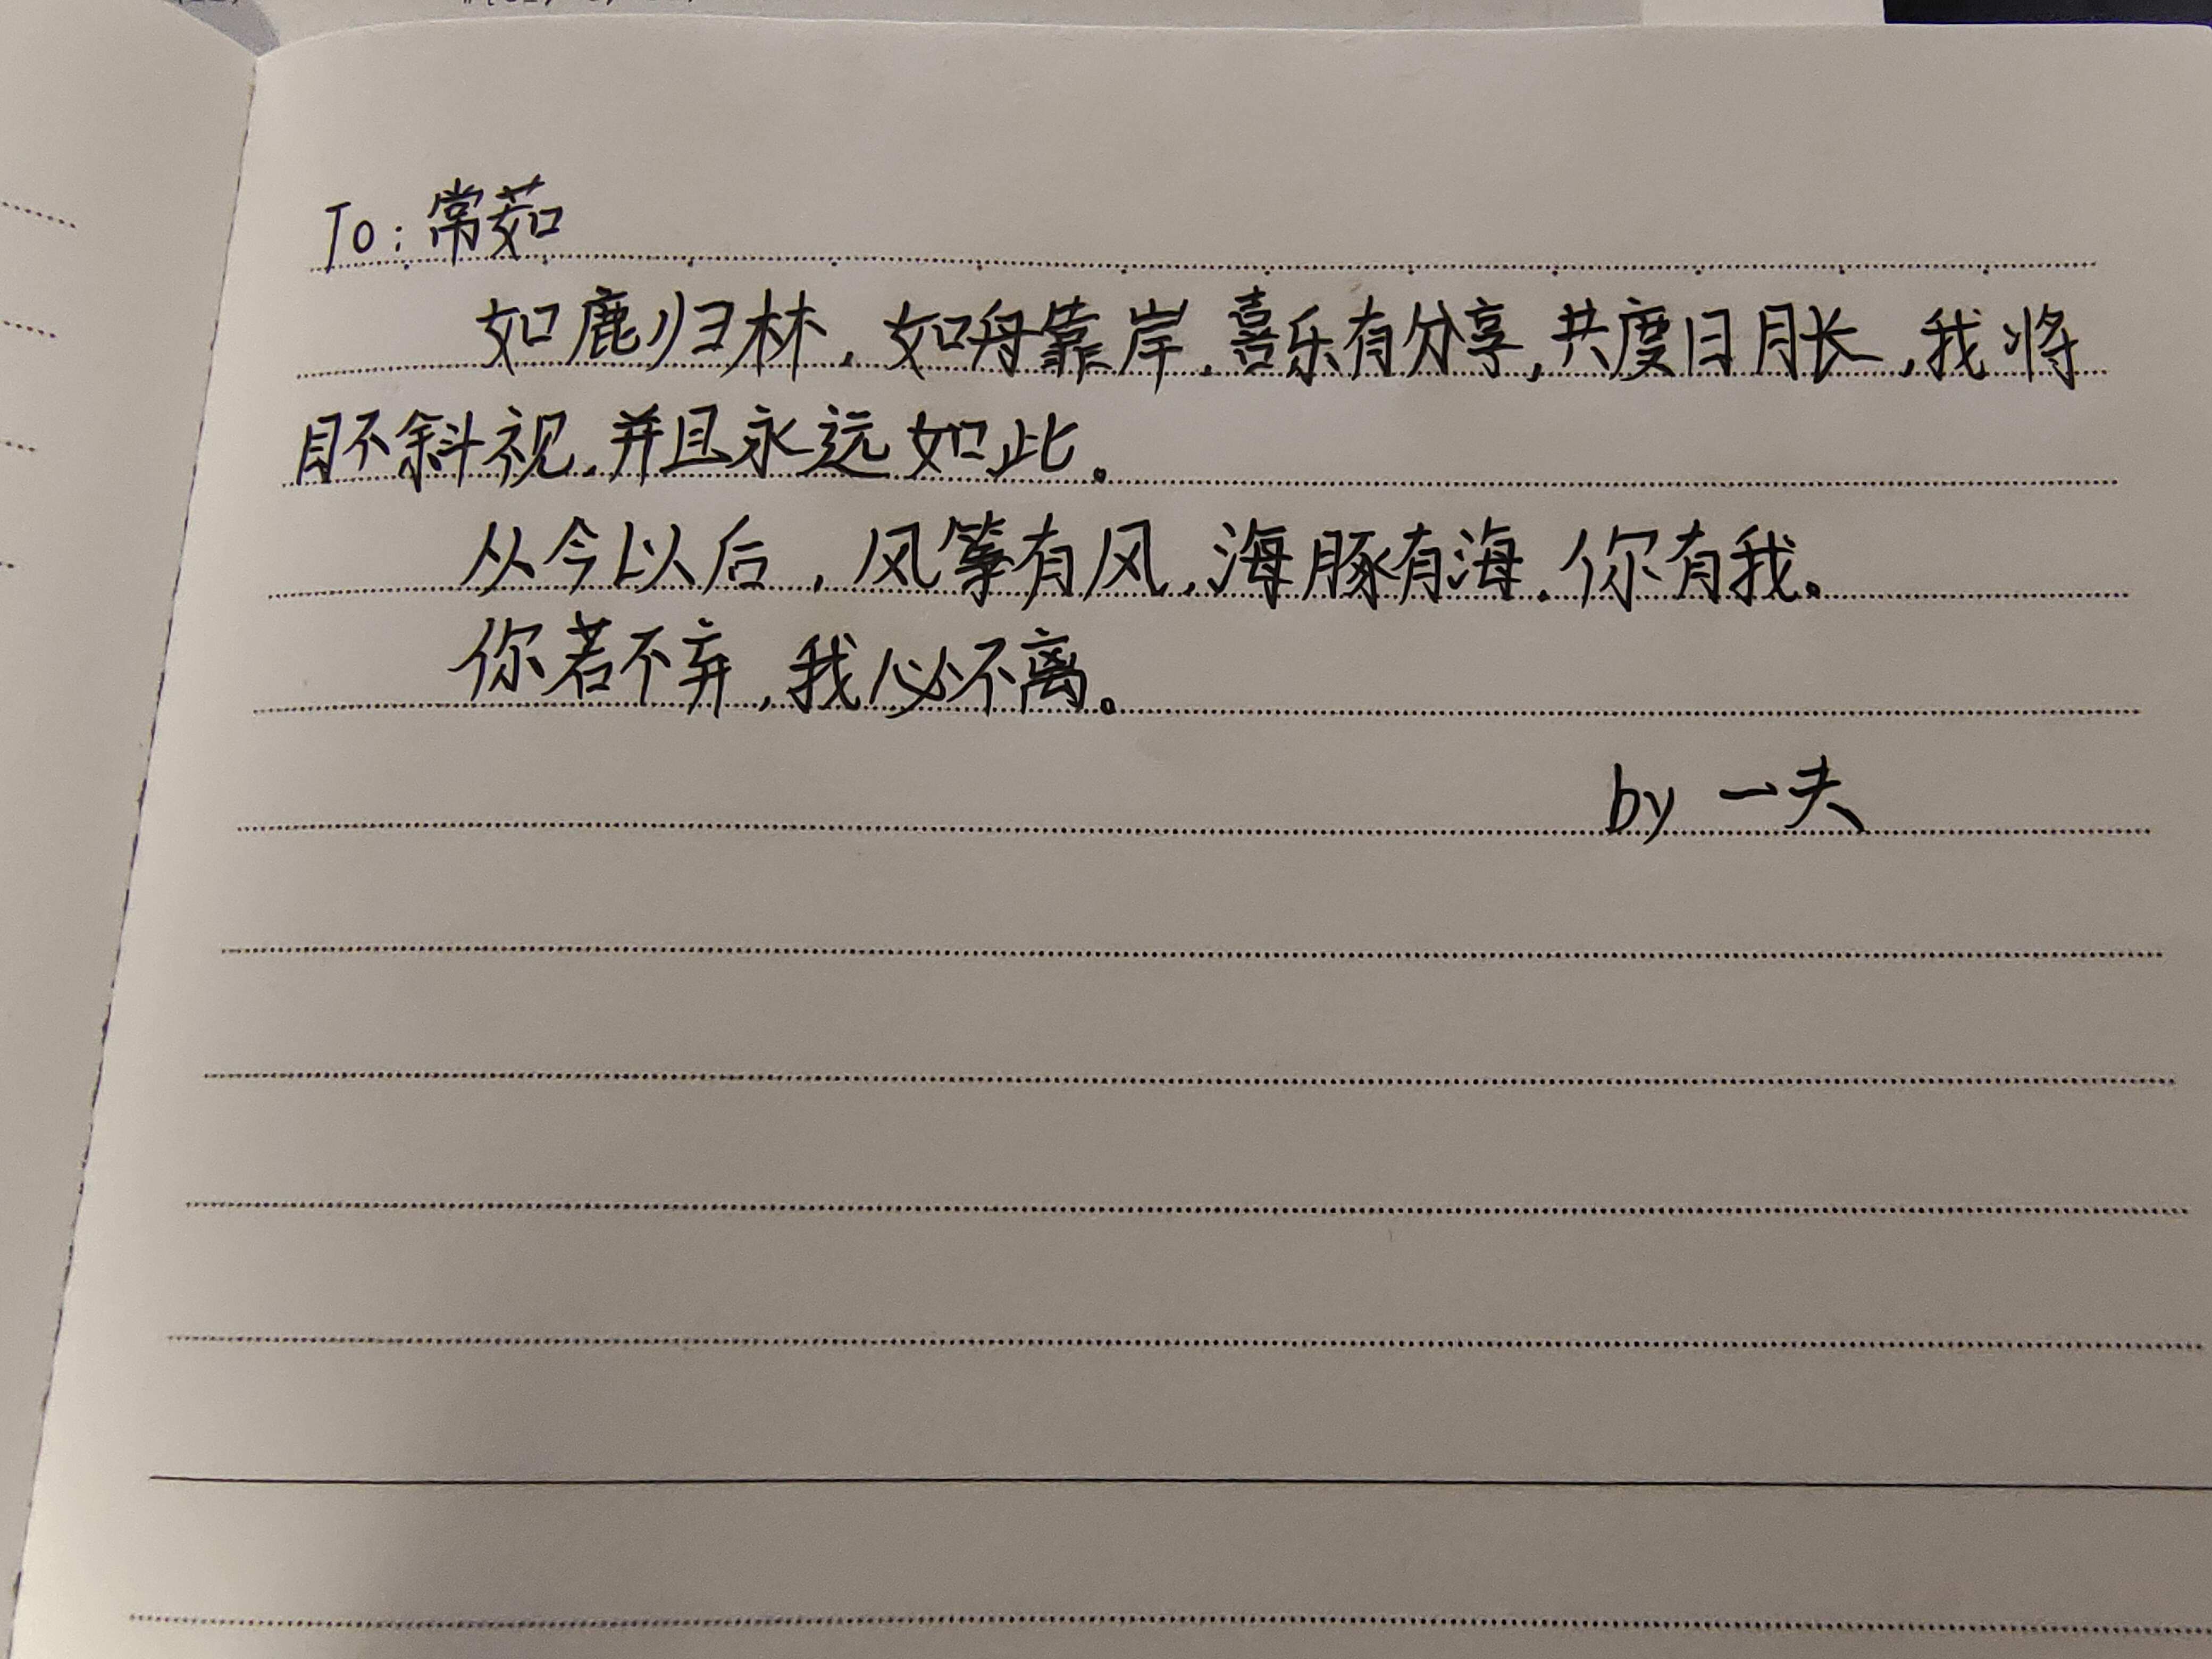 To：常茹
如鹿归林，如舟靠岸，喜乐有分享，共度日月长，我将
目不斜视，并且永远如此。
从今以后，风筝有风，海豚有海，你有我。
你若不弃，我必不离。
by 一夫